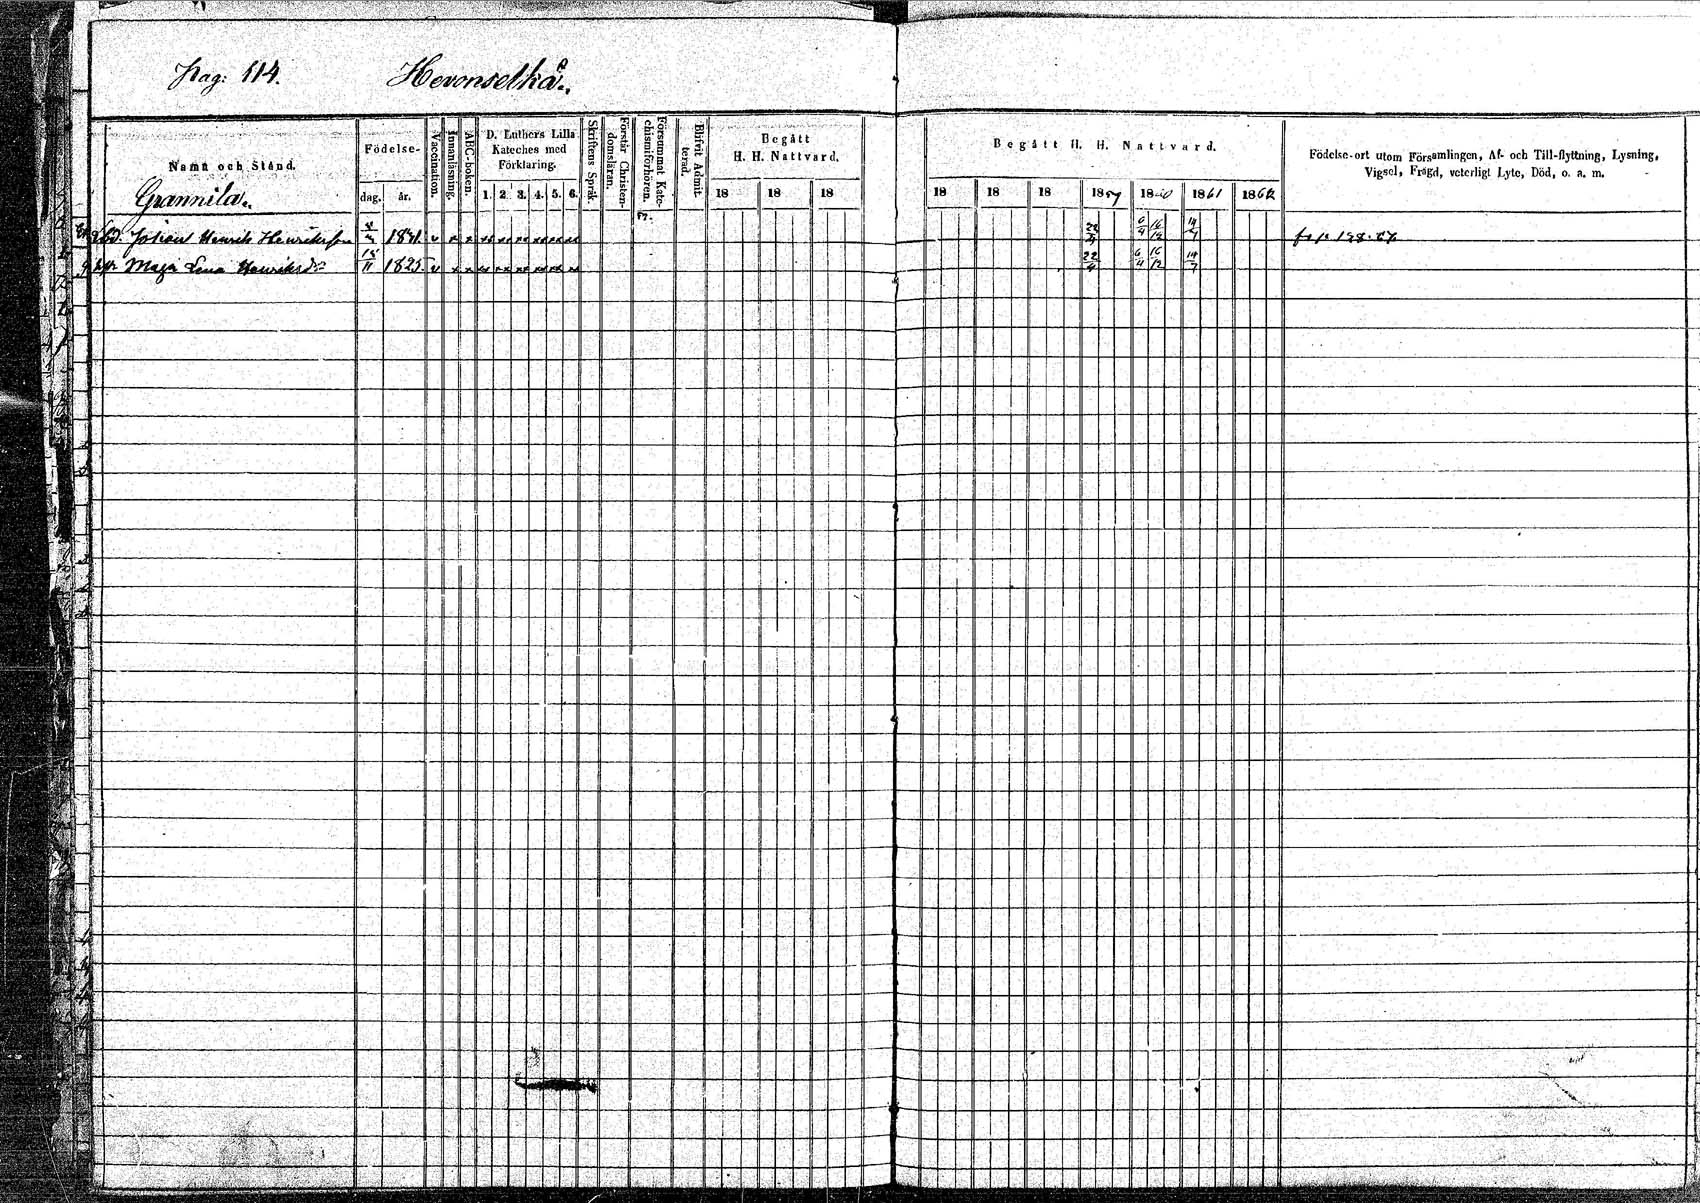 Pag: 114. Hevonselkä.
Namn och Stånd.
Födelse-
dag. år.
Vaccination.
Innanläsning.
ABC-boken.
D. Luthers Lilla Kateches med Förklaring.
1. 2. 3. 4. 5. 6.
Skriftens Språk.
Förstår Christendomsläran.
Försummat Katechismiförhören.
Blifvit Admitterad.
Begått H. H. Nattvard.
18 18 18
Begått H. H. Nattvard.
18 18 18 1859 1860 1861 1862
Födelse-ort utom Församlingen, Af- och Till-flyttning, Lysning,
Vigsel, Frägd, veterligt Lyte, Död, o. a. m.
Grannila.
Johan Henrik Henriksson 22/4 6/4 16/12 14/7
Maja Lena Henriksdr 18/11 1825. v x x xx xx xx xx xx xx 22/4 6/4 16/12 14/7